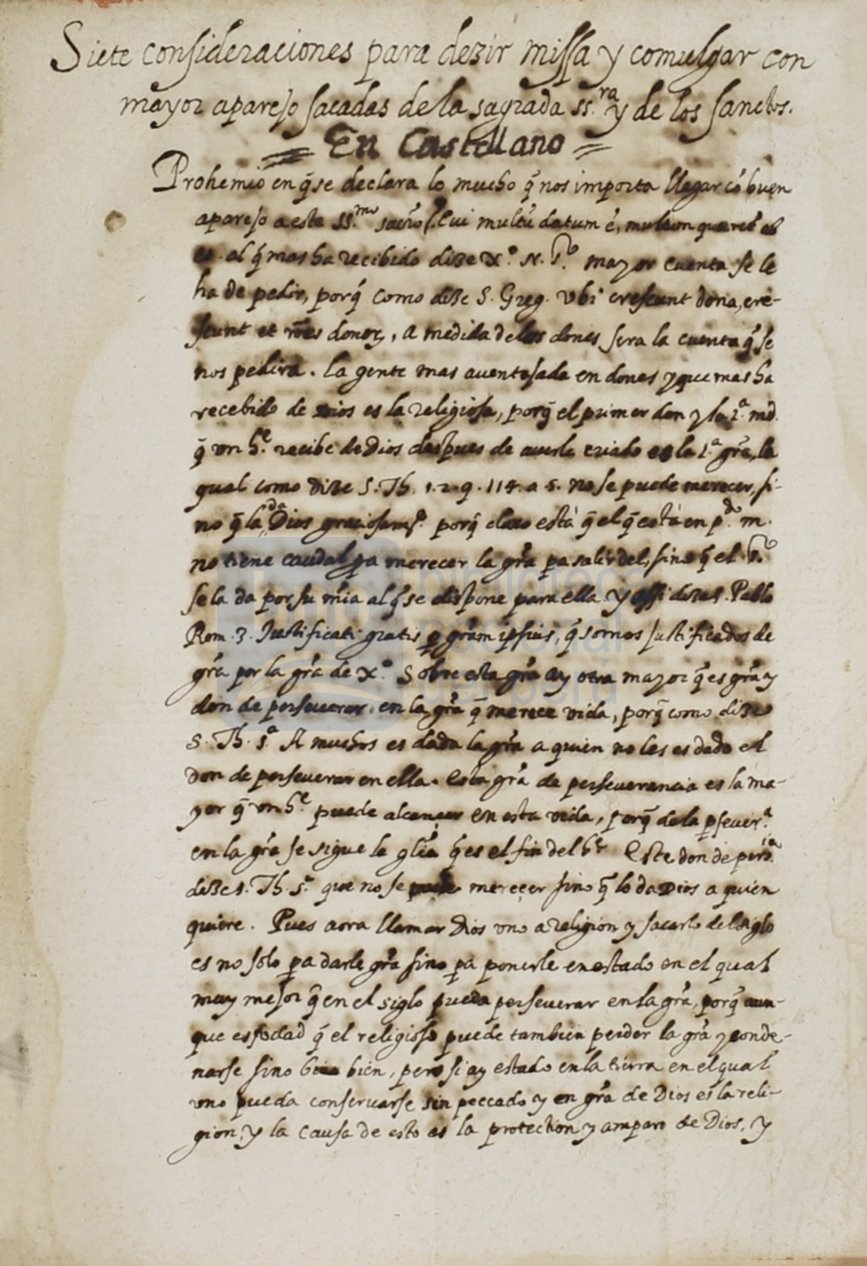 Siete consideraciones para dezir missa y comulgar con
mayor aparejo sacadas de la sagrada ss.ra y de los sanctos.
En Castellano
Prohemio en q̃ se declara lo mucho q̃ nos importa llegar cõ buen
aparejo a este SS.mo sacrõ. Cui multũ datum ẽ, multum quaret ab
eo. al q̃ mas ha recibido dize X.o N. S.r mayor cuenta se le
ha de pedir, porq̃ como dize S. Greg. Ubi crescunt dona, cre-
scunt et rões donoꝝ, a medida de los dones sera la cuenta q̃ se
nos pedira. la gente mas aventajada en dones y que mas ha
recebido de Dios es la religiosa, porq̃ el primer don y la 1.a md.
q̃ un h.e recibe de Dios despues de averle criado es la 1.a grã, la
qual como dize S. Th. 1.2.q. 114. a 5. no se puede merecer, si-
no q̃ la da Dios graciosam.te porq̃ claro está q̃ el q̃ está en p.do m.
no tiene caudal pa merecer la grã pa salir del, sino q̃ el S.r
se la da por su mĩa al q̃ se dispone para ella y assi dize S. Pablo
Rom. 3. Justificati gratis p grãm ipsius, q̃ somos justificados de
grã por la grã de X.o Sobre esta grã ay otra mayor q̃ es grã y
don de perseverar en la grã q̃ merece vida, porq̃ como dize
S. Th. A muchos es dada la grã a quien no les es dado el
don de perseverar en ella. Esta grã de perseverancia es la ma-
yor q̃ un h.e puede alcançar en esta vida, porq̃ de la psever.a
en la grã se sigue la glĩa q̃ es el fin del h.e Este don de per.a
dize S. Th. que no se puede merecer sino q̃ lo da Dios a quien
quiere. Pues aora llamar Dios uno a religion y sacarlo del siglo
es no solo pa darle grã sino pa ponerle en estado en el qual
muy mejor q̃ en el siglo pueda perseverar en la grã, porq̃ aun-
que es verdad q̃ el religioso puede tambien perder la grã y conde-
narse sino vive bien, pero si ay estado en la tierra en el qual
uno pueda conservarse sin peccado y en grã de Dios es la reli-
gion, y la causa de esto es la protection y amparo de Dios, y